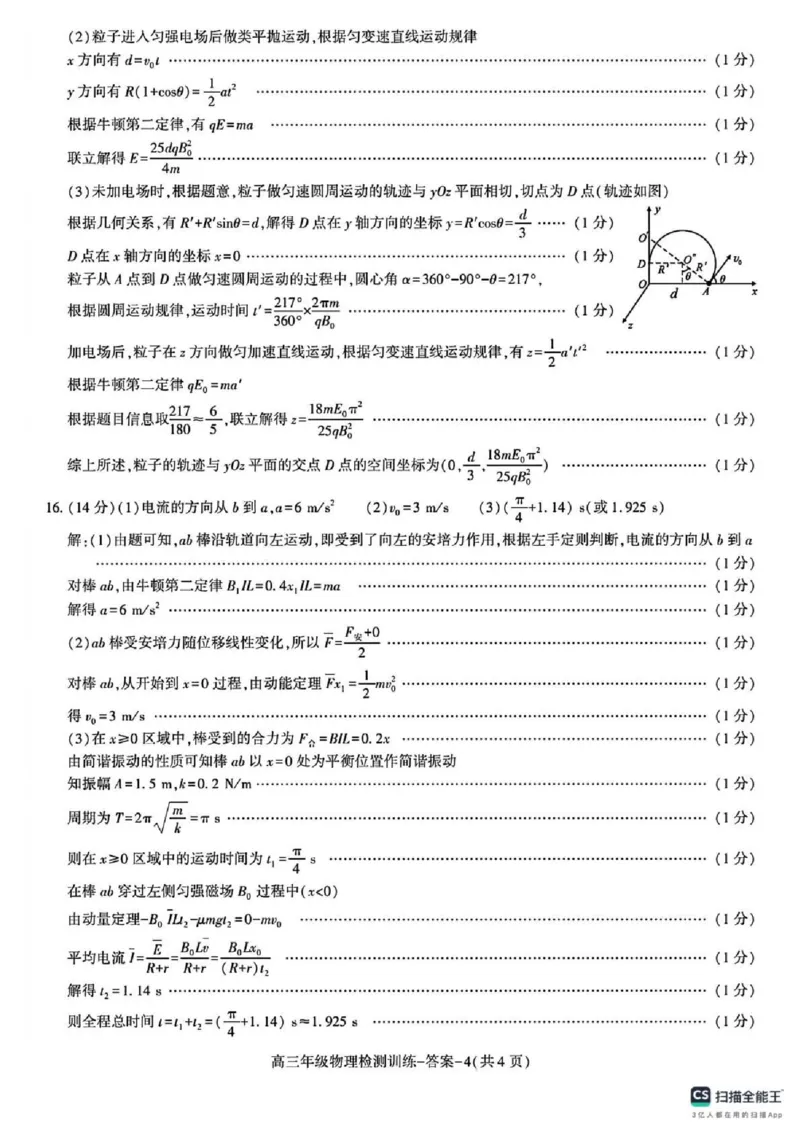 (2)粒子进入匀强电场后做类平抛运动,根据匀变速直线运动规律
x 方向有 d=v₀t …… (1 分)
y 方向有 R(1+cosθ)=1/2 at² …… (1 分)
根据牛顿第二定律,有 qE=ma …… (1 分)
联立解得 E=25dqB₀²/4m …… (1 分)
(3)未加电场时,根据题意,粒子做匀速圆周运动的轨迹与 yOz 平面相切,切点为 D 点(轨迹如图)
根据几何关系,有 R′+R′sinθ=d,解得 D 点在 y 轴方向的坐标 y=R′cosθ=d/3 …… (1 分)
D 点在 x 轴方向的坐标 x=0 …… (1 分)
粒子从 A 点到 D 点做匀速圆周运动的过程中,圆心角 α=360°−90°−θ=217°,
根据圆周运动规律,运动时间 t′=217°/360°×2πm/qB₀ …… (1 分)
y
O′
D R′ O″ R′ v₀
θ θ
O d A x
z
加电场后,粒子在 z 方向做匀加速直线运动,根据匀变速直线运动规律,有 z=1/2 a′t′² …… (1 分)
根据牛顿第二定律 qE₀=ma′
根据题目信息取217/180≈6/5,联立解得 z=18mE₀π²/25qB₀² …… (1 分)
综上所述,粒子的轨迹与 yOz 平面的交点 D 点的空间坐标为(0,d/3,18mE₀π²/25qB₀²) …… (1 分)
16.(14 分)(1)电流的方向从 b 到 a,a=6 m/s² (2)v₀=3 m/s (3)(π/4+1.14) s(或1.925 s)
解:(1)由题可知,ab 棒沿轨道向左运动,即受到了向左的安培力作用,根据左手定则判断,电流的方向从 b 到 a
…… (1 分)
对棒 ab,由牛顿第二定律 B₁IL=0.4x₁IL=ma …… (1 分)
解得 a=6 m/s² …… (1 分)
(2)ab 棒受安培力随位移线性变化,所以 F̅=(F安+0)/2 …… (1 分)
对棒 ab,从开始到 x=0 过程,由动能定理 F̅x₁=1/2 mv₀² …… (1 分)
得 v₀=3 m/s …… (1 分)
(3)在 x≥0 区域中,棒受到的合力为 F合=BIL=0.2x …… (1 分)
由简谐振动的性质可知棒 ab 以 x=0 处为平衡位置作简谐振动
知振幅 A=1.5 m,k=0.2 N/m …… (1 分)
周期为 T=2π√(m/k)=π s …… (1 分)
则在 x≥0 区域中的运动时间为 t₁=π/4 s …… (1 分)
在棒 ab 穿过左侧匀强磁场 B₀ 过程中(x<0)
由动量定理−B₀I̅Lt₂−μmgt₂=0−mv₀ …… (1 分)
平均电流 I̅=E̅/(R+r)=B₀Lv̅/(R+r)=B₀Lx₀/(R+r)t₂ …… (1 分)
解得 t₂=1.14 s …… (1 分)
则全程总时间 t=t₁+t₂=(π/4+1.14) s≈1.925 s …… (1 分)
高三年级物理检测训练−答案−4(共 4 页)
CS 扫描全能王
3亿人都在用的扫描App